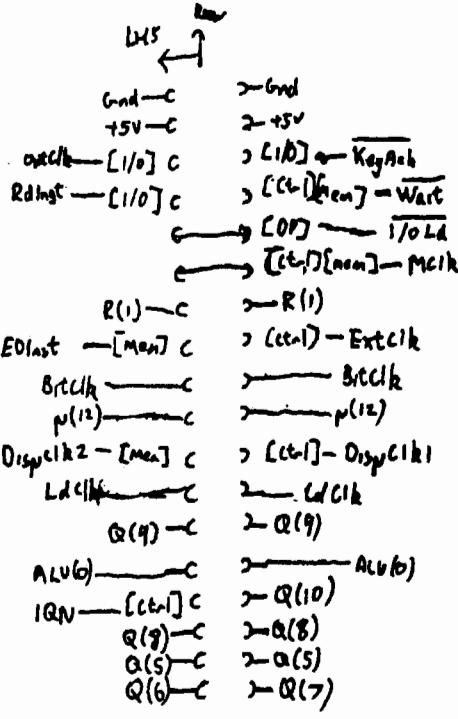 Rear
LHS
Gnd Gnd
+5V +5V
[I/O] [I/O] KeyAck
RdInst [I/O] [Ctrl][Mem] Wait
I/O Ld
[Ctrl][Mem] MClk
R(1) R(1)
[Mem] [Ctrl] ExtClk
BitClk BitClk
μ(12) μ(12)
DispClk2 [Mem] [Ctrl] DispClk1
LdClk LdClk
Q(9) Q(9)
ALU(0) ALU(0)
IQN [Ctrl] Q(10)
Q(8) Q(8)
Q(5) Q(5)
Q(6) Q(7)